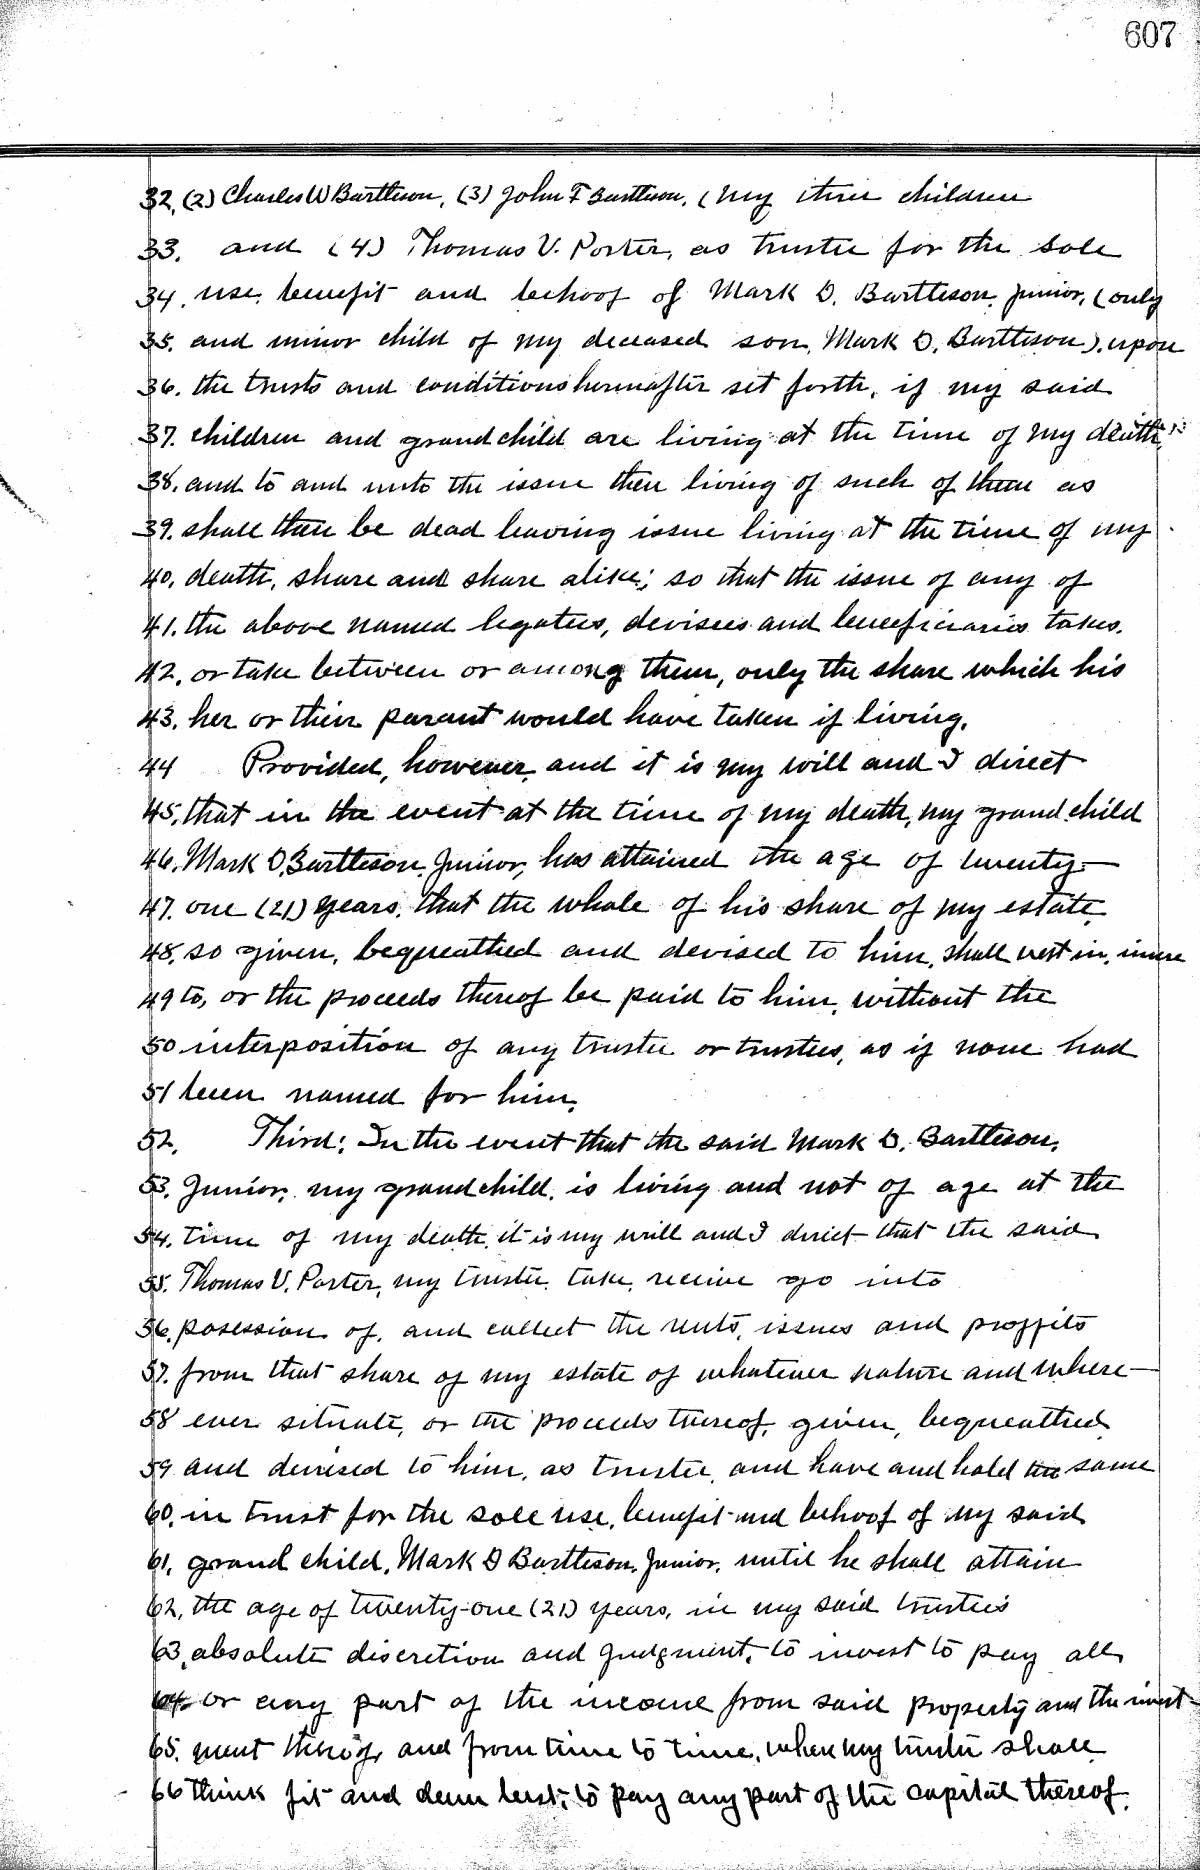 607
32. (2) Charles W Barttison, (3) John F Barttison, (my three children
33. and (4) Thomas V. Porter, as trustee for the sole
34. use, benefit and behoof of Mark D. Barttison, Junior, (only
35. and minor child of my deceased son, Mark D. Barttison), upon
36. the trusts and conditions hereinafter set forth, if my said
37. children and grandchild are living at the time of my death,
38. and to and unto the issue then living of such of them as
39. shall then be dead leaving issue living at the time of my
40. death, share and share alike; so that the issue of any of
41. the above named legatees, devisees and beneficiaries takes,
42. or take between or among them, only the share which his
43. her or their parant would have taken if living.
44 Provided, however, and it is my will and I direct
45. that in the event at the time of my death, my grand child
46. Mark D. Barttison, Junior, has attained the age of twenty-
47. one (21) years, that the whole of his share of my estate
48. so given, bequeathed and devised to him, shall vest in, inure
49 to, or the proceeds thereof be paid to him, without the
50 interposition of any trustee or trustees, as if none had
51 been named for him.
52. Third: In the event that the said Mark D. Barttison,
53. Junior, my grandchild, is living and not of age at the
54. time of my death, it is my will and I direct that the said
55. Thomas V. Porter, my trustee, take, receive go into
56. posession of, and collect the rents, issues and proffits
57. from that share of my estate of whatever nature and where-
58 ever situate, or the proceeds thereof, given, bequeathed
59 and devised to him, as trustee, and have and hold the same
60. in trust for the sole use, benefit and behoof of my said
61. grand child, Mark D Barttison, Junior, until he shall attain
62. the age of twenty-one (21) years, in my said trustee's
63. absolute discretion and judgment, to invest to pay all
64. or any part of the income from said property and the invest-
65. ment thereof, and from time to time, when my trustee shall
66 think fit and deem best, to pay any part of the capital thereof.